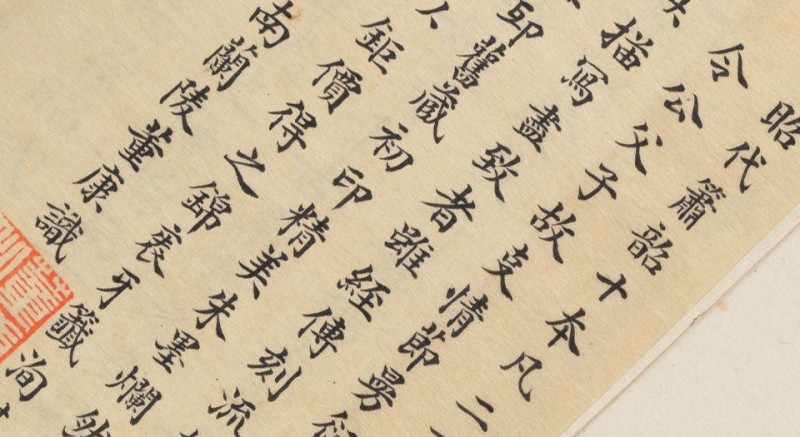 昭代簫韶十本凡二
令公父子故叓情莭曼衍
描寫盡致者雖經傳刻流
舊藏初印精美朱墨爛然
鉅價得之錦袠牙籤洵
南蘭陵董康識